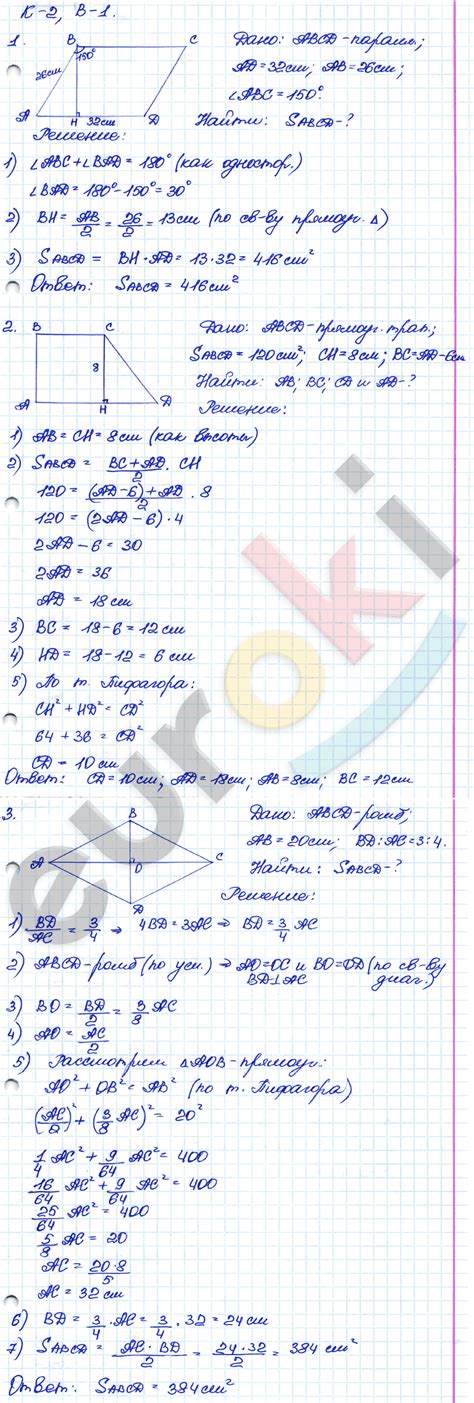 К-2, В-1.
1.
B
C
150°
26см
A
H
32см
D
Дано: ABCD-паралл;
AD=32см; AB=26см;
∠ABC=150°.
Найти: SABCD-?
Решение:
1) ∠ABC+∠BAD=180° (как одностор.)
∠BAD=180°-150°=30°
2) BH= AB/2 = 26/2 = 13см (по св-ву прямоуг. Δ)
3) SABCD = BH·AD= 13·32=416см²
Ответ: SABCD=416см²
2.
B
C
8
A
H
D
Дано: ABCD-прямоуг. трап.;
SABCD=120см²; CH=8см; BC=AD-6см
Найти: AB; BC; CD и AD-?
Решение:
1) AB=CH=8см (как высоты)
2) SABCD= BC+AD/2 · CH
120= (AD-6)+AD/2 · 8
120=(2AD-6)·4
2AD-6=30
2AD=36
AD=18см
3) BC= 18-6=12см
4) HD= 18-12= 6см
5) По т. Пифагора:
CH²+HD²=CD²
64+36=CD²
CD=10см
Ответ: CD=10см; AD=18см; AB=8см; BC=12см
3.
B
A
O
C
D
Дано: ABCD-ромб;
AB=20см; BD:AC=3:4.
Найти: SABCD-?
Решение:
1) BD/AC = 3/4 ⇒ 4BD=3AC ⇒ BD=3/4 AC
2) ABCD-ромб (по усл.) ⇒ AO=OC и BO=OD (по св-ву
BD⊥AC диаг.)
3) BO= BD/2 = 3/8 AC
4) AO= AC/2
5) Рассмотрим ΔAOB-прямоуг.:
AO²+OB²=AB² (по т. Пифагора)
(AC/2)²+(3/8 AC)²= 20²
1/4 AC²+ 9/64 AC²= 400
16/64 AC²+ 9/64 AC²= 400
25/64 AC²= 400
5/8 AC= 20
AC= 20·8/5
AC= 32см
6) BD= 3/4 ·AC= 3/4 · 32= 24см
7) SABCD= AC·BD/2 = 24·32/2 = 384см²
Ответ: SABCD= 384см²
euroki